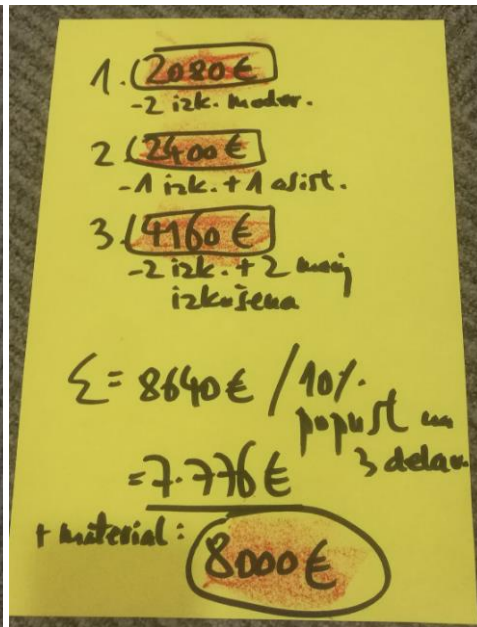 1. 2080 €
-2 izk. moder.
2. 2400 €
-1 izk. + 1 asist.
3. 4160 €
-2 izk. + 2 manj
izkušena
Σ = 8640 € / 10%
popust na
3 delav.
= 7.776 €
+ material:
8000 €